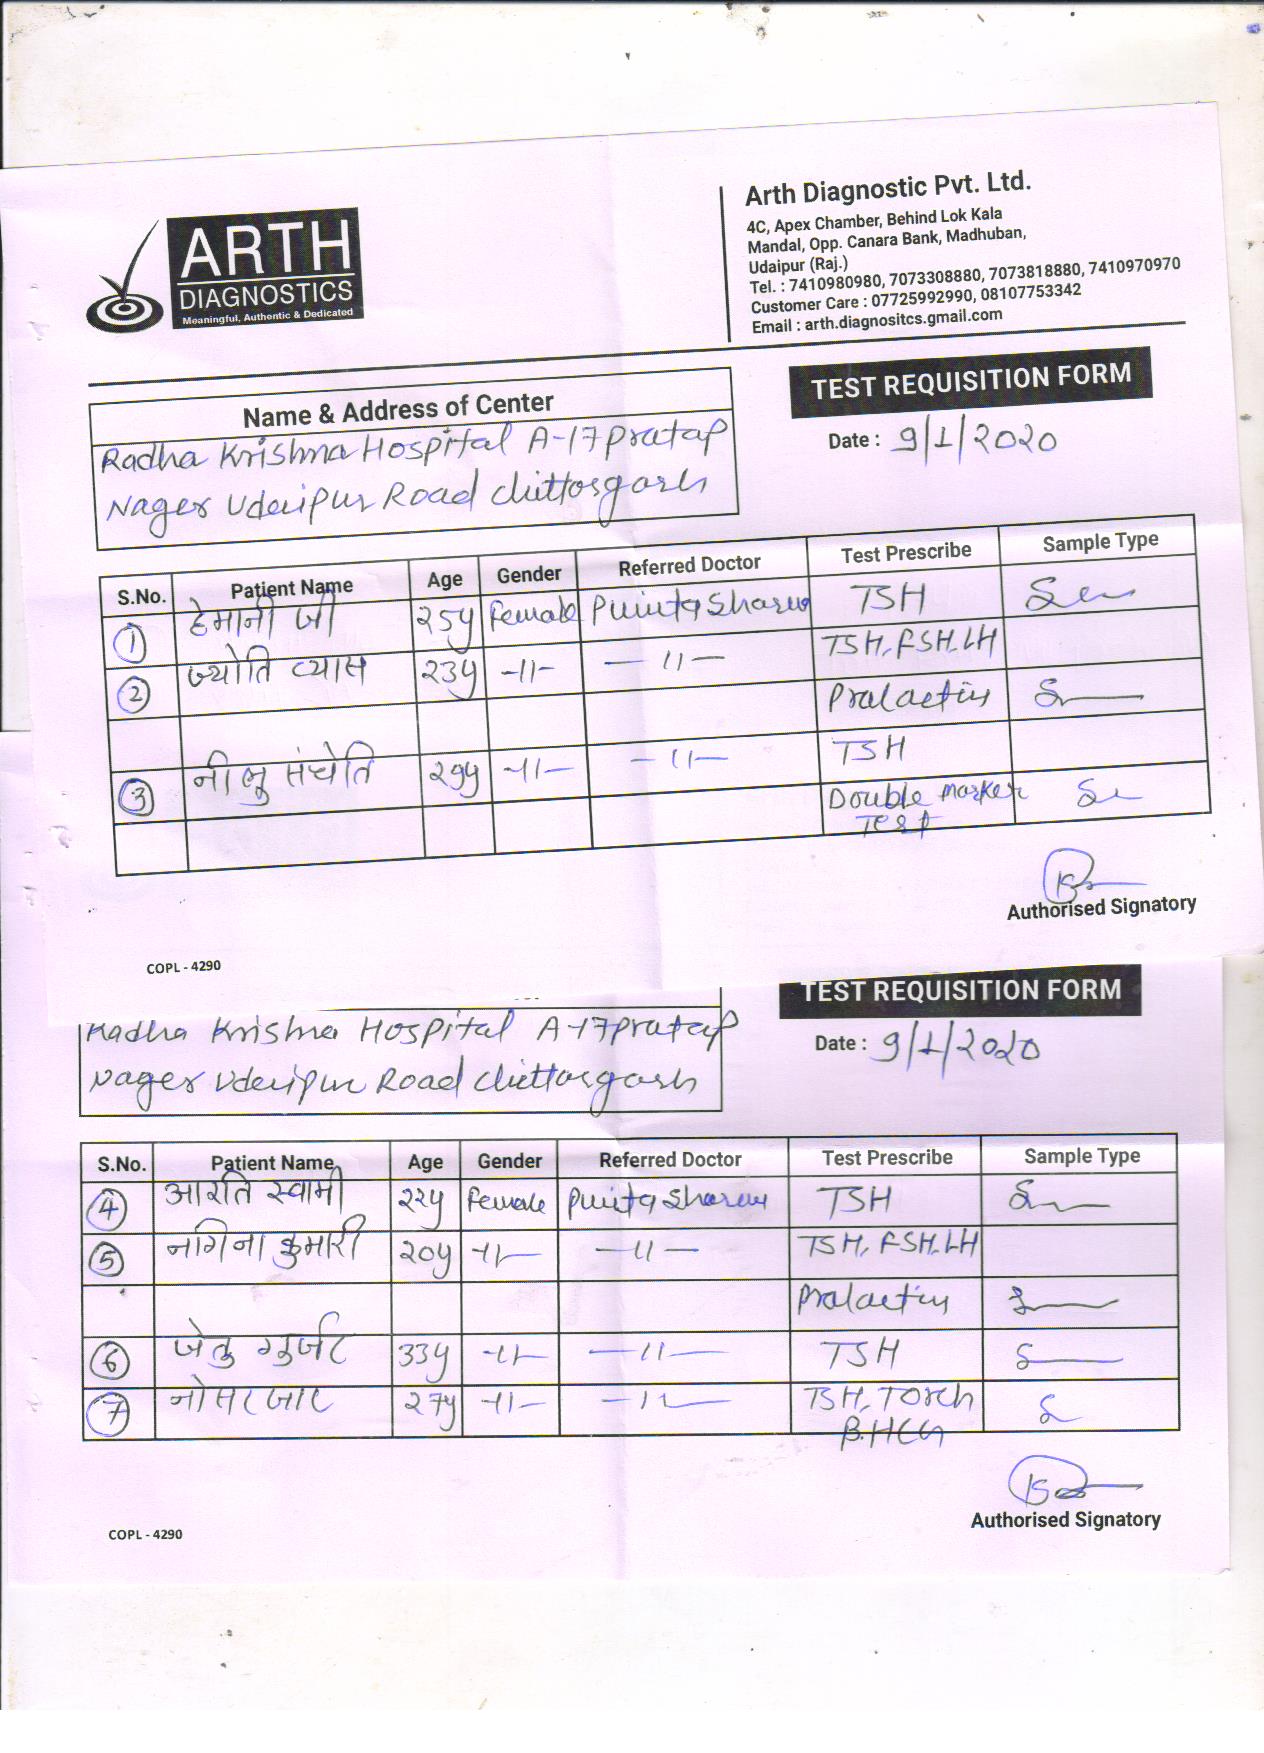 ARTH
DIAGNOSTICS
Meaningful, Authentic & Dedicated
Arth Diagnostic Pvt. Ltd.
4C, Apex Chamber, Behind Lok Kala
Mandal, Opp. Canara Bank, Madhuban,
Udaipur (Raj.)
Tel. : 7410980980, 7073308880, 7073818880, 7410970970
Customer Care : 07725992990, 08107753342
Email : arth.diagnositcs.gmail.com
TEST REQUISITION FORM
Date : 9/1/2020
Name & Address of Center
Radha Krishna Hospital A-17 Pratap
Nager Udaipur Road Chittorgarh
S.No. Patient Name Age Gender Referred Doctor Test Prescribe Sample Type
1 हेमानी जी 25y Female Punita Sharma TSH
2 ज्योति व्यास 23y -11- -11- TSH, FSH, LH
Prolactin
3 संचेति 29y -11- -11- TSH
Double marker
Test
Authorised Signatory
COPL - 4290
TEST REQUISITION FORM
Radha Krishna Hospital A-17 Pratap
Date : 9/1/2020
Nager Udaipur Road Chittorgarh
S.No. Patient Name Age Gender Referred Doctor Test Prescribe Sample Type
4 आरति स्वामी 22y Female Punita Sharma TSH
5 नगिना कुमारी 20y -11- -11- TSH, FSH, LH
Prolactin
6 गुर्जर 33y -11- -11- TSH
7 27y -11- -11- TSH, TORCH
B.HCG
Authorised Signatory
COPL - 4290